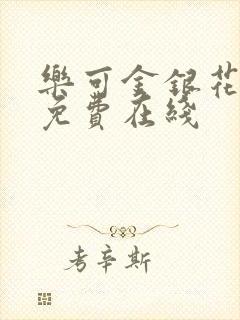 樂可金銀花
免費在綫
考辛斯